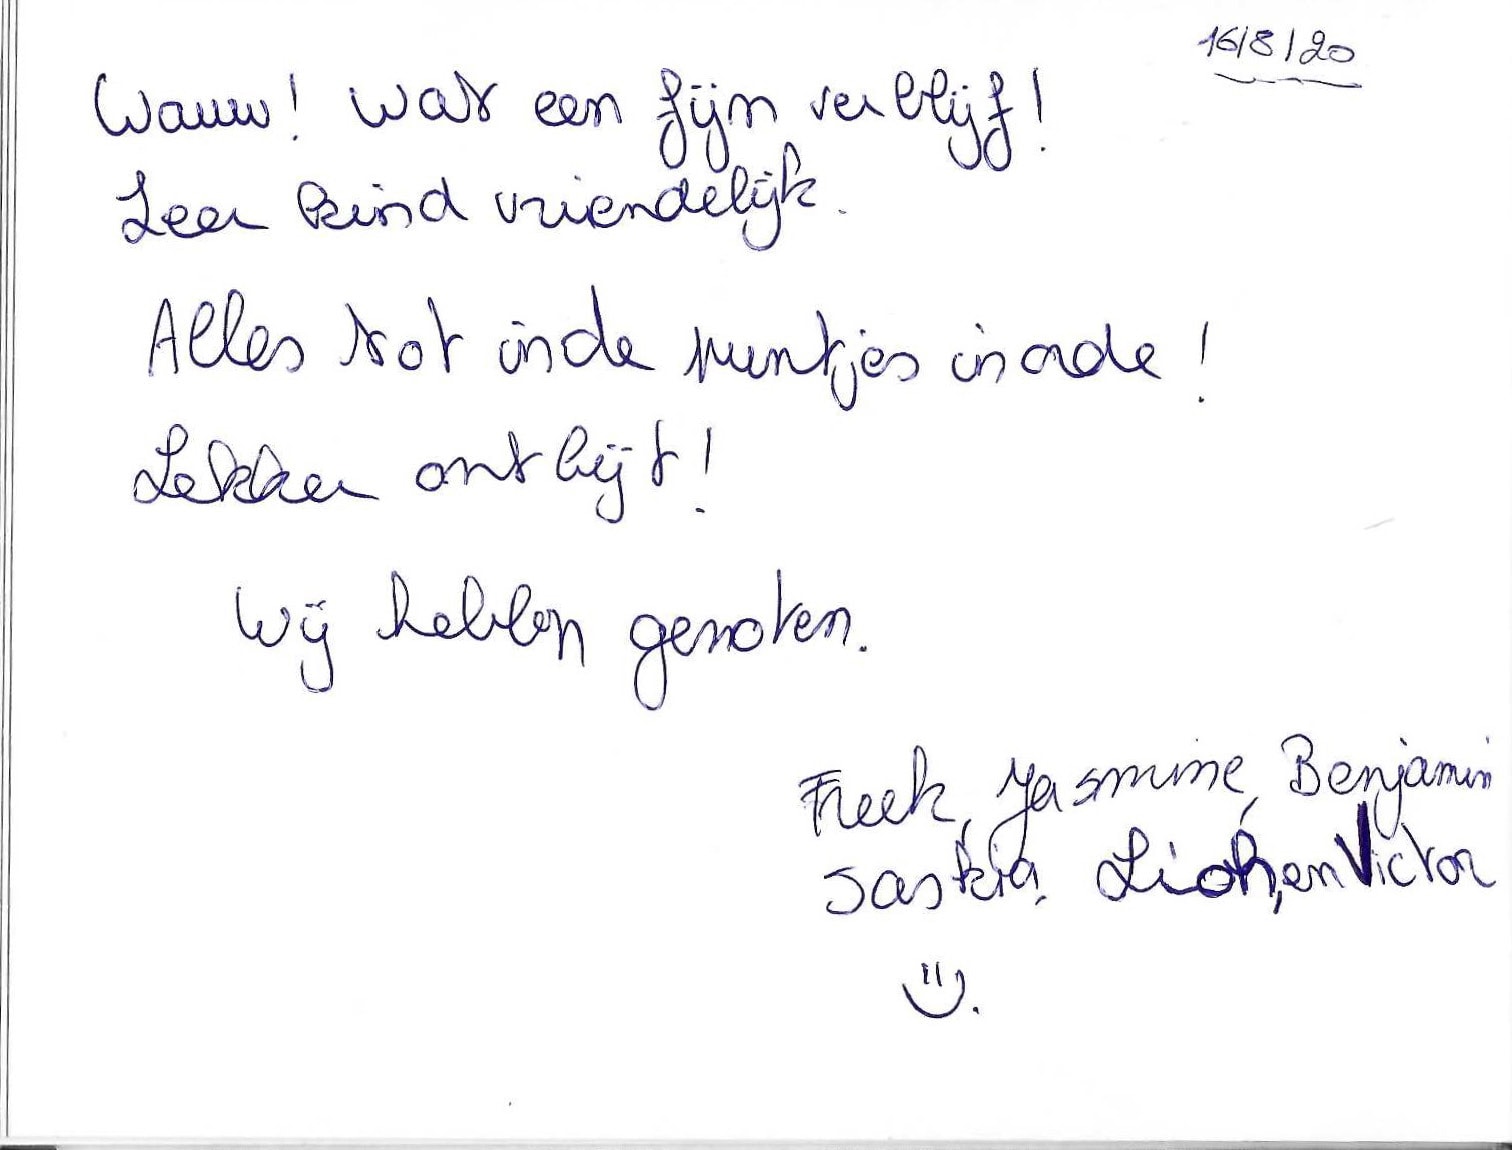 16/8/20
Wauw! Wat een fijn verblijf!
Zeer kind vriendelijk.
Alles tot in de puntjes in orde!
Lekker ontbijt!
Wij hebben genoten.
Freek, Yasmine, Benjamin
Saskia, en Victor